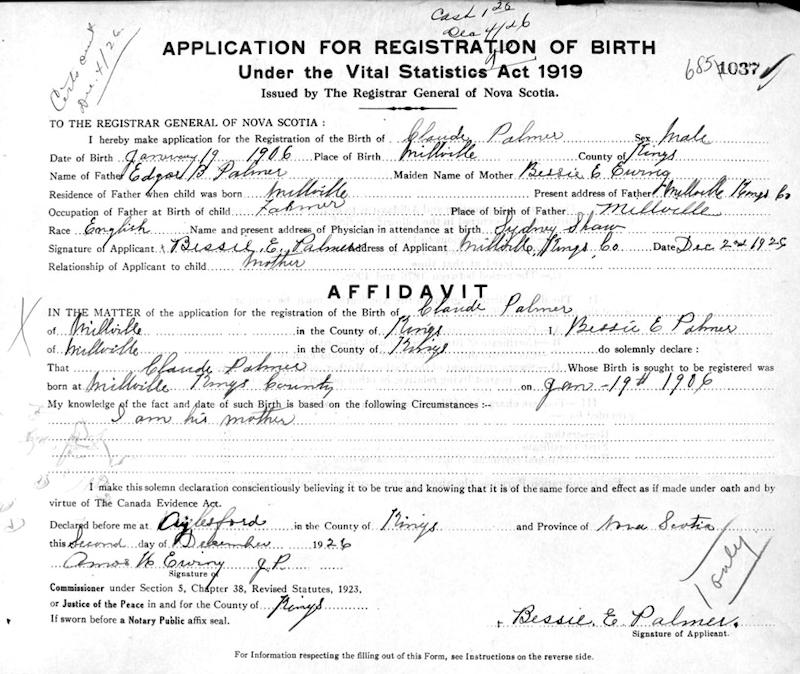 Cash 1 26
Dec 4/26
Certs sent
Dec. 4/26
APPLICATION FOR REGISTRATION OF BIRTH
Under the Vital Statistics Act 1919
Issued by The Registrar General of Nova Scotia.
685
1037
TO THE REGISTRAR GENERAL OF NOVA SCOTIA :
I hereby make application for the Registration of the Birth of Claude Palmer Sex Male
Date of Birth January 19 1906 Place of Birth Millville County of Kings
Name of Father Edgar B Palmer Maiden Name of Mother Bessie E Ewing
Residence of Father when child was born Millville Present address of Father Millville Kings Co
Occupation of Father at Birth of child Farmer Place of birth of Father Millville
Race English Name and present address of Physician in attendance at birth Sydney Shaw
Signature of Applicant Bessie E. Palmer Address of Applicant Millville, Kings, Co. Date Dec 2nd 1926
Relationship of Applicant to child Mother
AFFIDAVIT
IN THE MATTER of the application for the registration of the Birth of Claude Palmer
of Millville in the County of Kings I, Bessie E Palmer
of Millville in the County of Kings do solemnly declare :
That Claude Palmer Whose Birth is sought to be registered was
born at Millville Kings County on Jan - 19th 1906
My knowledge of the fact and date of such Birth is based on the following Circumstances :--
I am his mother
I make this solemn declaration conscientiously believing it to be true and knowing that it is of the same force and effect as if made under oath and by
virtue of The Canada Evidence Act.
Declared before me at Aylesford in the County of Kings and Province of Nova Scotia
this Second day of December 1926
Amos W Ewing J.P.
Signature of
Commissioner under Section 5, Chapter 38, Revised Statutes, 1923,
or Justice of the Peace in and for the County of Kings
If sworn before a Notary Public affix seal.
1 only
Bessie. E. Palmer.
Signature of Applicant.
For Information respecting the filling out of this Form, see Instructions on the reverse side.